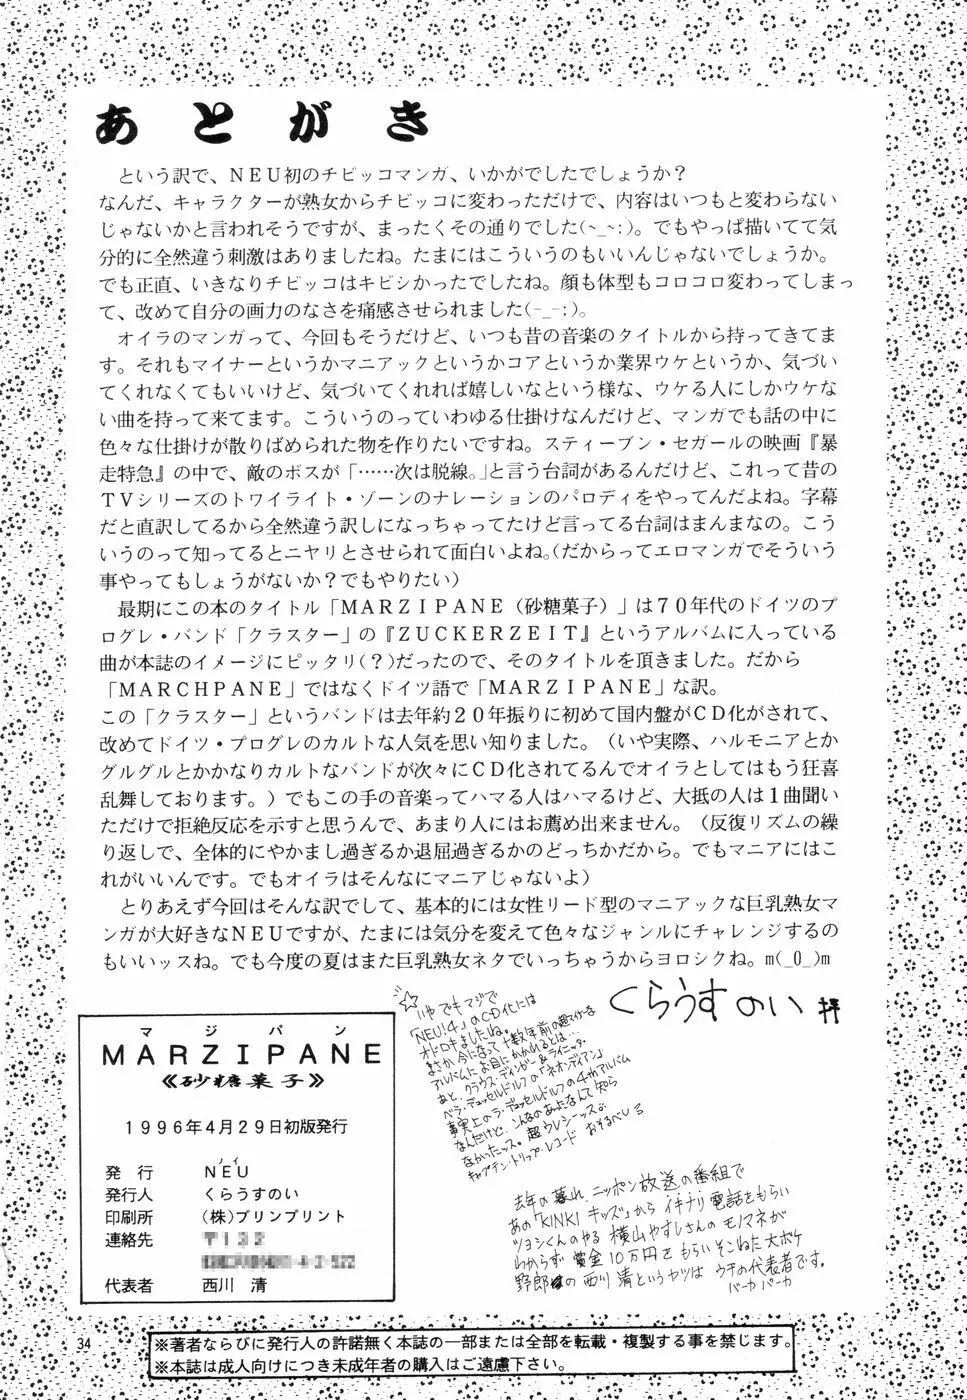 あとがき
という訳で、NEU初のチビッコマンガ、いかがでしたでしょうか?
なんだ、キャラクターが熟女からチビッコに変わっただけで、内容はいつもと変わらない
じゃないかと言われそうですが、まったくその通りでした(~_~;)。でもやっぱ描いてて気
分的に全然違う刺激はありましたね。たまにはこういうのもいいんじゃないでしょうか。
でも正直、いきなりチビッコはキビシかったでしたね。顔も体型もコロコロ変わってしまっ
て、改めて自分の画力のなさを痛感させられました(-_-;)。
オイラのマンガって、今回もそうだけど、いつも昔の音楽のタイトルから持ってきてま
す。それもマイナーというかマニアックというかコアというか業界ウケというか、気づい
てくれなくてもいいけど、気づいてくれれば嬉しいなという様な、ウケる人にしかウケな
い曲を持って来てます。こういうのっていわゆる仕掛けなんだけど、マンガでも話の中に
色々な仕掛けが散りばめられた物を作りたいですね。スティーブン・セガールの映画『暴
走特急』の中で、敵のボスが「……次は脱線。」と言う台詞があるんだけど、これって昔の
TVシリーズのトワイライト・ゾーンのナレーションのパロディをやってんだよね。字幕
だと直訳してるから全然違う訳しになっちゃってたけど言ってる台詞はまんまなの。こう
いうのって知ってるとニヤリとさせられて面白いよね。(だからってエロマンガでそういう
事やってもしょうがないか?でもやりたい)
最期にこの本のタイトル「MARZIPANE(砂糖菓子)」は70年代のドイツのプ
ログレ・バンド「クラスター」の『ZUCKERZEIT』というアルバムに入っている
曲が本誌のイメージにピッタリ(?)だったので、そのタイトルを頂きました。だから
「MARCHPANE」ではなくドイツ語で「MARZIPANE」な訳。
この「クラスター」というバンドは去年約20年振りに初めて国内盤がCD化がされて、
改めてドイツ・プログレのカルトな人気を思い知りました。(いや実際、ハルモニアとか
グルグルとかかなりカルトなバンドが次々にCD化されてるんでオイラとしてはもう狂喜
乱舞しております。)でもこの手の音楽ってハマる人はハマるけど、大抵の人は1曲聞い
ただけで拒絶反応を示すと思うんで、あまり人にはお薦め出来ません。(反復リズムの繰
り返しで、全体的にやかまし過ぎるか退屈過ぎるかのどっちかだから。でもマニアにはこ
れがいいんです。でもオイラはそんなにマニアじゃないよ)
とりあえず今回はそんな訳でして、基本的には女性リード型のマニアックな巨乳熟女マ
ンガが大好きなNEUですが、たまには気分を変えて色々なジャンルにチャレンジするの
もいいッスね。でも今度の夏はまた巨乳熟女ネタでいっちゃうからヨロシクね。m(_0_)m
くらうすのい 拝
☆いやでもマジで
「NEU!4」のCD化には
オドロキましたね。
まさか今になって十数年前の
アルバムにお目にかかれるとは…
あと、クラウス・ディンガー&
ラ・デュッセルドルフの「ネオンディアン」
事実上のラ・デュッセルドルフの4thアルバム
なんだけど、こんなのあったなんて知ら
なかったッス。超ウレシーッス
キャプテン・トリップ・レコード おそるべし
去年の暮れ、ニッポン放送の番組で
あの「KINKIキッズ」からイキナリ電話をもらい
ツヨシくんのやる横山やすしさんのモノマネが
わからず賞金10万円をもらいそこねた大ボケ
野郎の西川清というヤツはウチの代表者です。
バーカバーカ
マジパン
MARZIPANE
《砂糖菓子》
1996年4月29日初版発行
ノイ
発行 NEU
発行人 くらうすのい
印刷所 (株)プリンプリント
連絡先 〒132
4-2-522
代表者 西川 清
34
※著者ならびに発行人の許諾無く本誌の一部または全部を転載・複製する事を禁じます。
※本誌は成人向けにつき未成年者の購入はご遠慮下さい。